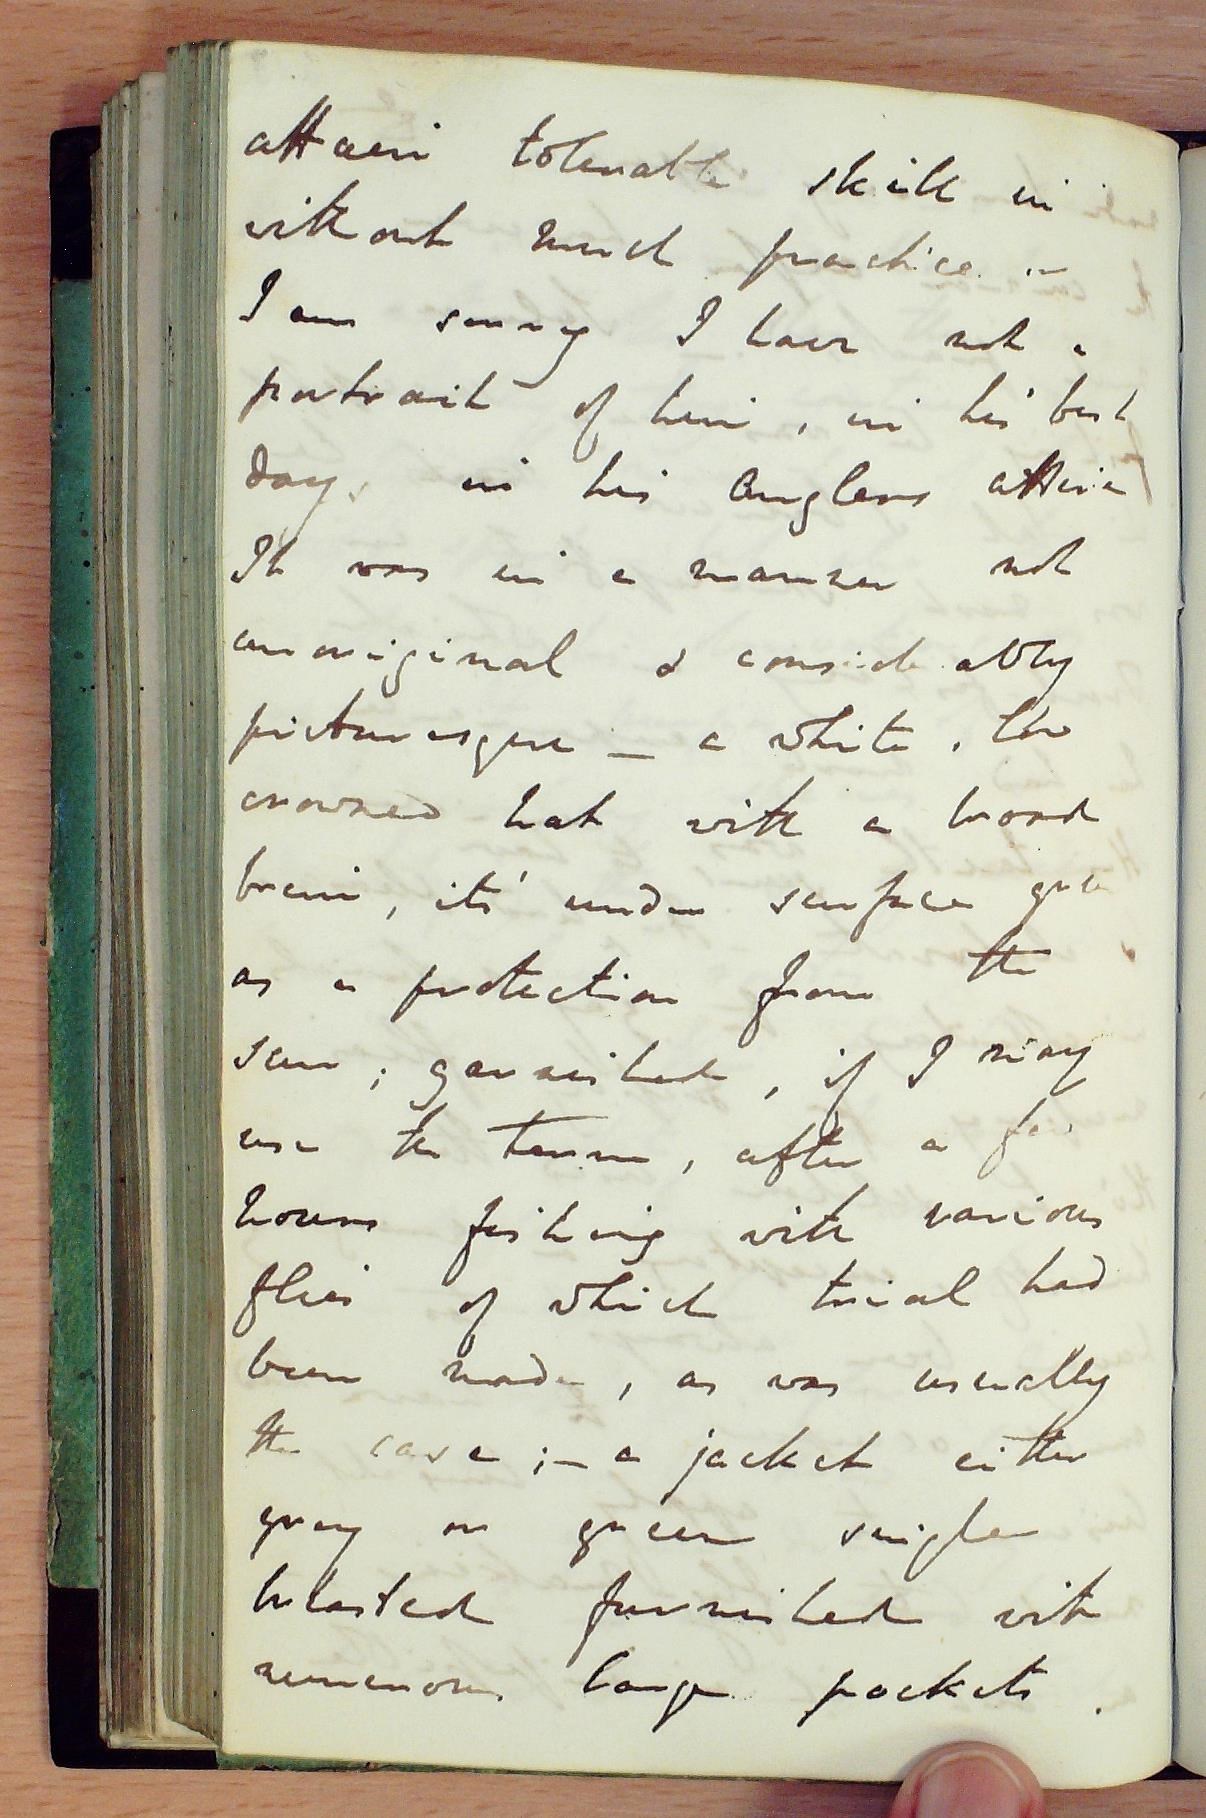 attain tolerable skill in
without much practice. —
I am sorry I have not a
portrait of him, in his best
days in his Anglers attire
It was in a manner not
unoriginal & considerably
picturesque — a white, low
crowned hat with a broad
brim, its' under surface green
as a protection from the
sun; garnished, if I may
use the term, after a few
hours fishing with various
flies of which trial had
been made, as was usually
the case; — a jacket either
grey or green single
breasted furnished with
numerous large pockets.